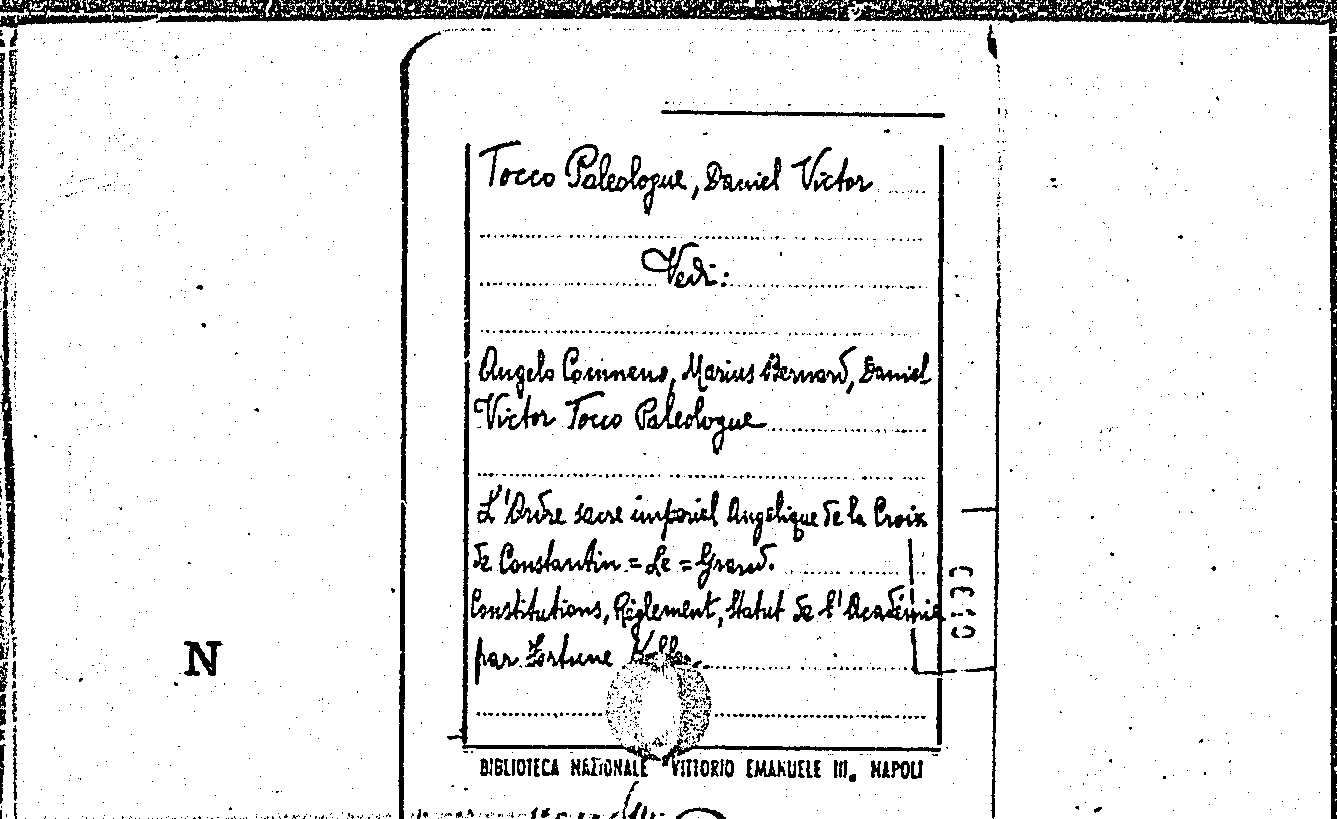 Tocco Paleologue, Daniel Victor
Vedi:
Angelo Comneno, Marius Bernard, Daniel
Victor Tocco Paleologue
L'Ordre sacre imperiel Angelique de la Croix
de Constantin = Le = Grand.
Constitutions, Règlement, Statut de l'Académie
par Fortune
N
BIBLIOTECA NAZIONALE "VITTORIO EMANUELE III. NAPOLI